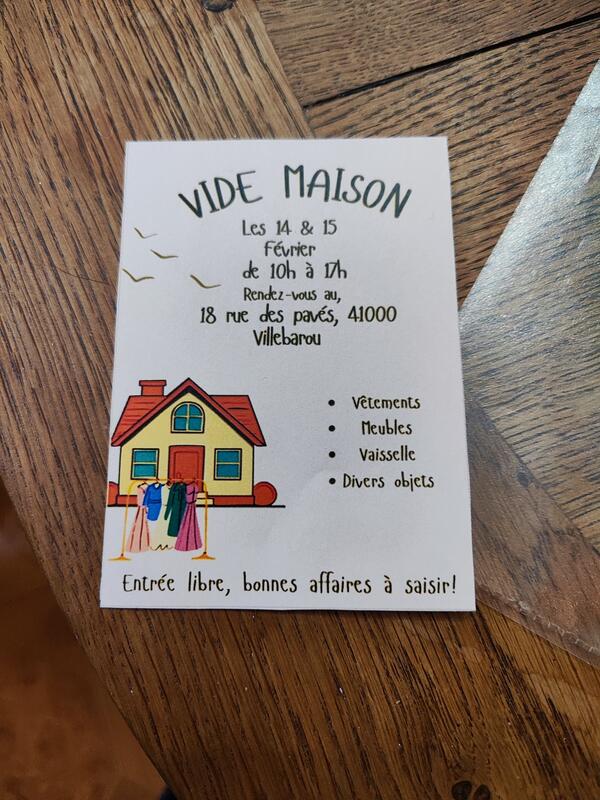 VIDE MAISON
Les 14 & 15
Février
de 10h à 17h
Rendez-vous au,
18 rue des pavés, 41000
Villebarou
• Vêtements
• Meubles
• Vaisselle
• Divers objets
Entrée libre, bonnes affaires à saisir!